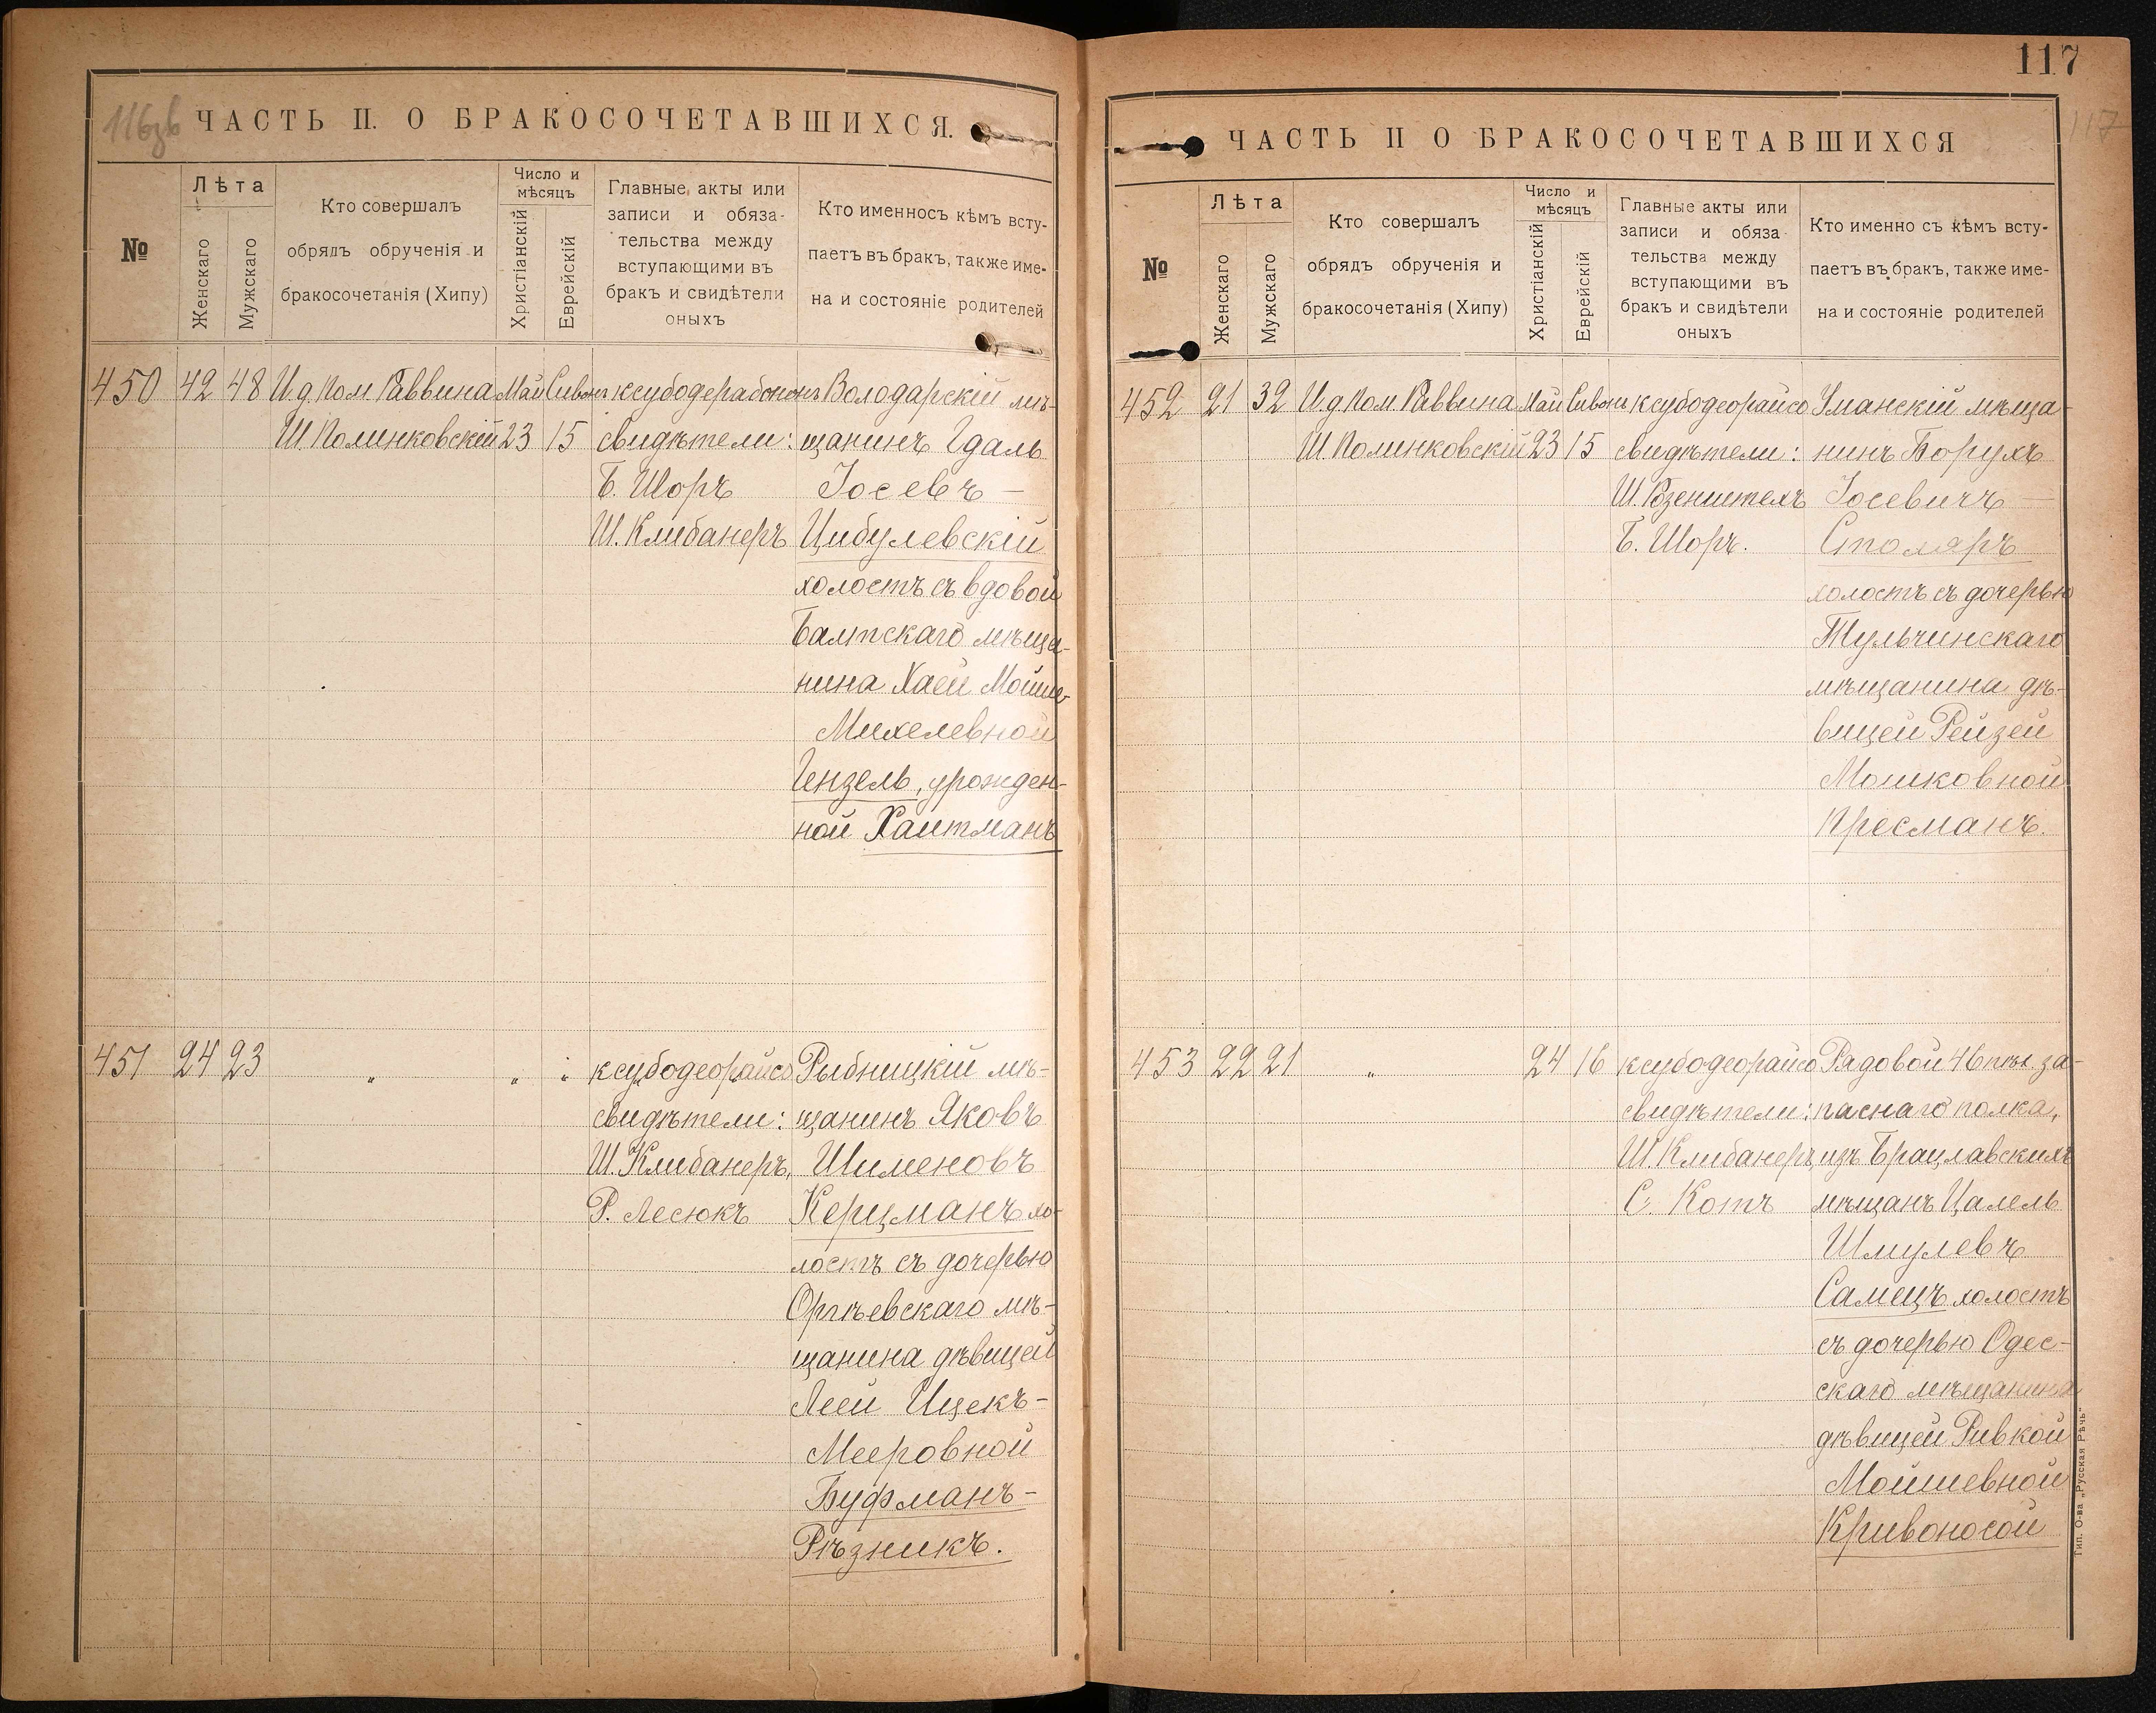 116зв
ЧАСТЬ II. О БРАКОСОЧЕТАВШИХСЯ.
№
Лѣта
Женскаго
Мужскаго
Кто совершалъ
обрядъ обрученія и
бракосочетанія (Хипу)
Число и
мѣсяцъ
Христіанскій
Еврейскій
Главные акты или
записи и обяза-
тельства между
вступающими въ
бракъ и свидѣтели
оныхъ
Кто именносъ кѣмъ всту-
паетъ въ бракъ, также име-
на и состояніе родителей
450 42 48 И.д. Пом. Раввина Май Сивонъ Володарскій мѣ-
Ш. Полинковскій 23 15 свидѣтели: щанинъ Гдаль
Б. Шоръ Іосевъ —
Ш. Клибанеръ Цибулевскій
холостъ съ вдовой
Балтскаго мѣща-
нина Хаей Мойше-
Михелевной
Гензель, урожден-
ной Хаитманъ
451 24 23 „ „ „ ксубодеорайсо Рыбницкій мѣ-
свидѣтели: щанинъ Яковъ
Ш. Клибанеръ, Шименовъ
Р. Лесюкъ Керцманъ хо-
лостъ съ дочерью
Оргѣевскаго мѣ-
щанина дѣвицей
Леей Ицекъ-
Мееровной
Буфманъ-
Рѣзникъ.
117
117
ЧАСТЬ II О БРАКОСОЧЕТАВШИХСЯ
№
Лѣта
Женскаго
Мужскаго
Кто совершалъ
обрядъ обрученія и
бракосочетанія (Хипу)
Число и
мѣсяцъ
Христіанскій
Еврейскій
Главные акты или
записи и обяза-
тельства между
вступающими въ
бракъ и свидѣтели
оныхъ
Кто именно съ кѣмъ всту-
паетъ въ бракъ, также име-
на и состояніе родителей
452 21 32 И.д. Пом. Раввина Май Сивонъ ксубодеорайсо Уманскій мѣща-
Ш. Полинковскій 23 15 свидѣтели: нинъ Борухъ
Ш. Розенштехъ Іосевичъ —
Б. Шоръ. Столяръ
холостъ съ дочерью
Тульчинскаго
мѣщанина дѣ-
вицей Рейзей
Мошковной
Пресманъ.
453 22 21 „ 24 16 ксубодеорайсо Рядовой 46 пѣх. за-
свидѣтели: паснаго полка,
Ш. Клибанеръ, изъ Брацлавскихъ
С. Котъ мѣщанъ Цалель
Шмулевъ
Самецъ холостъ
съ дочерью Одес-
скаго мѣщанина
дѣвицей Ривкой
Мойшевной
Кривоносой
Тип. О-ва „Русская Рѣчь“